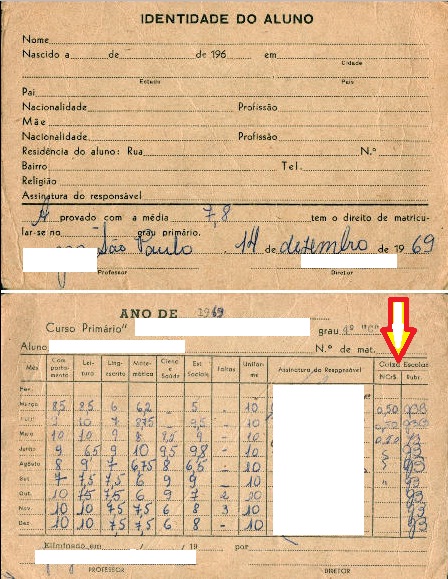 IDENTIDADE DO ALUNO
Nome
Nascido a de de 196 em
Cidade
Estado País
Pai
Nacionalidade Profissão
Mãe
Nacionalidade Profissão
Residência do aluno: Rua N.º
Bairro Tel.
Religião
Assinatura do responsável
A provado com a média 7,8 tem o direito de matricu-
lar-se no grau primário.
São Paulo, 14 de dezembro de 1969
Professor Diretor
ANO DE 1969
Curso Primário" grau 4º "C"
Aluno N.º de mat.
Mês Comportamento Leitura Ling. escrita Matemática Cienc. e Saúde Est. Sociais Faltas Uniforme Assinatura do Responsável Caixa Escolar
NCr$. Rubr.
Fev.
Março 8,5 8,5 6 6,2 - 5 - 10 0,50
Abril 9 10 9 8,75 - 9,5 - 10 0,50
Maio 10 10 9 8 8,5 9 - 10 0,50
Junho 9 6,5 9 10 9,5 9,8 - 10
Agôsto 8 9 7 6,75 8 6,5 - 10
Set. 7 7,5 7,5 6 9 9 - 10
Out. 10 7,5 7,5 6 9 7 2 10
Nov. 10 10 7,5 7,5 6 8 3 10
Dez. 10 10 7,5 7,5 6 8 - 10
Eliminado em / / 19 por
PROFESSOR DIRETOR